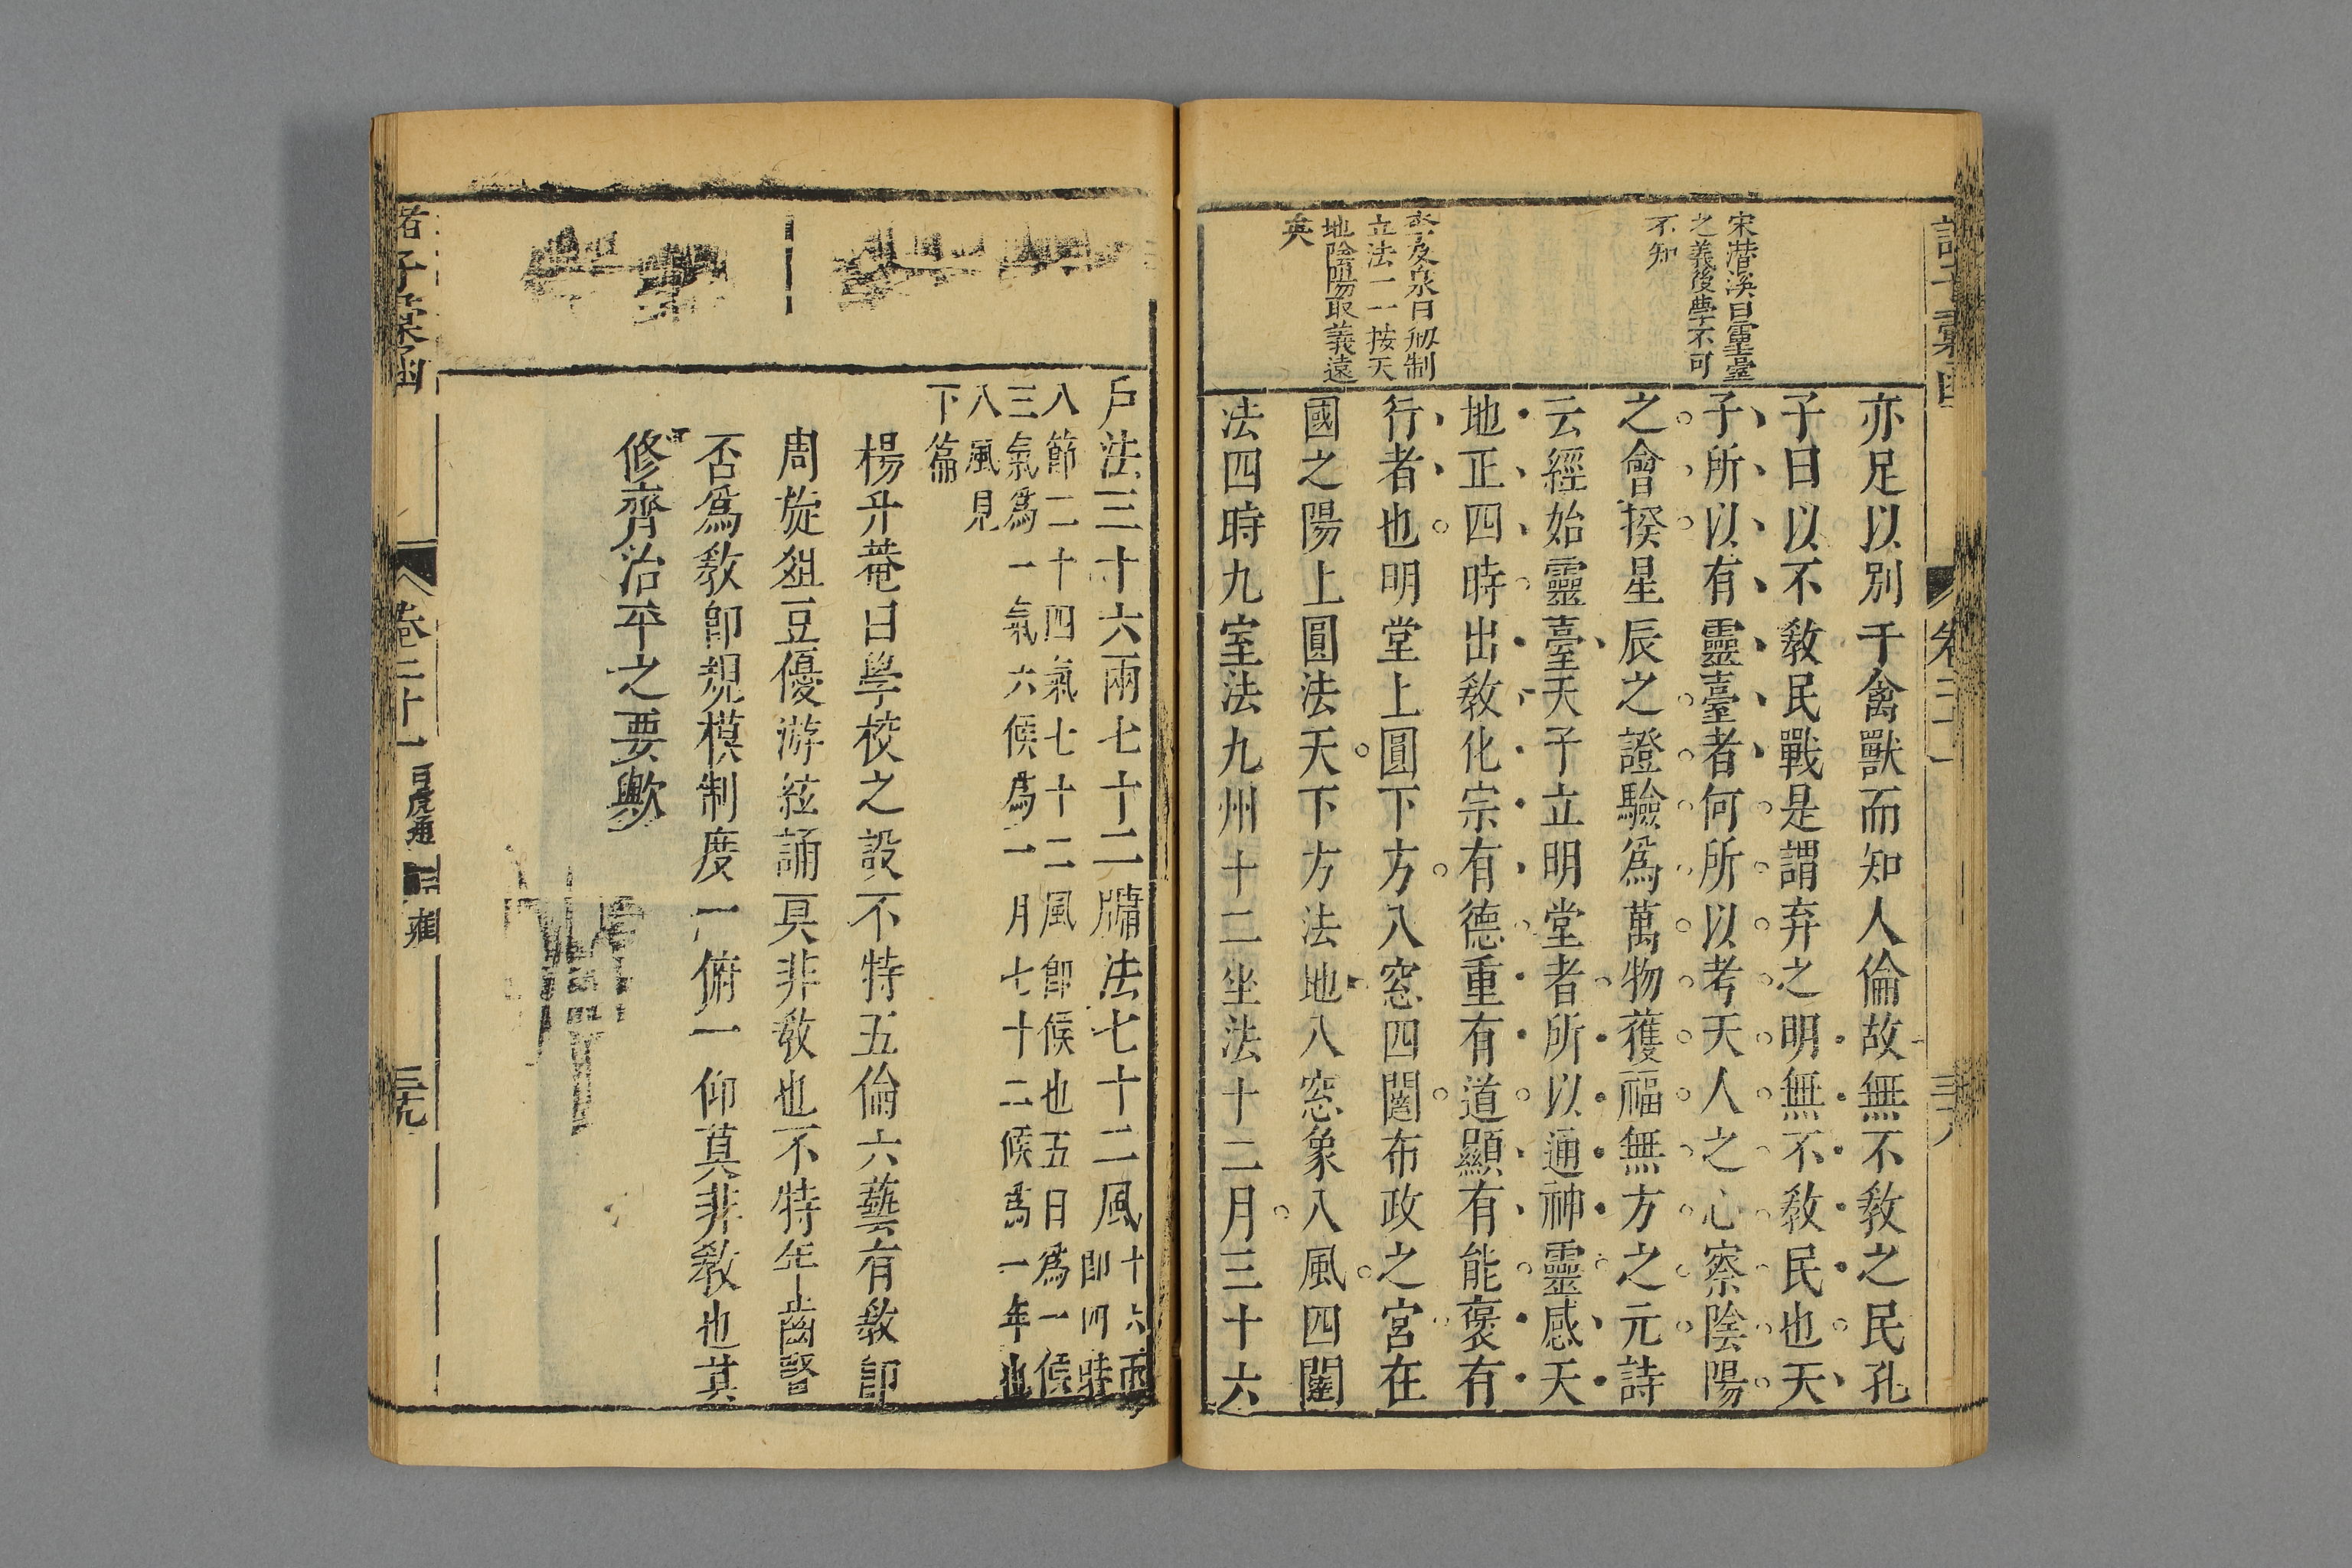 宋潛溪曰靈臺
之義後學不可
不知
泉曰刱制
立法一一按天
地陰陽取義遠
矣
亦足以別于禽獸而知人倫故無不敎之民孔
子曰以不敎民戰是謂弃之明無不敎民也天
子所以有靈臺者何所以考天人之心察陰陽
之會揆星辰之證驗爲萬物獲福無方之元詩
云經始靈臺天子立明堂者所以通神靈感天
地正四時出敎化宗有德重有道顯有能褒有
行者也明堂上圓下方八窓四闥布政之宮在
國之陽上圓法天下方法地八窓象八風四闥
法四時九室法九州十二坐法十二月三十六
戶法三十六兩七十二牖法七十二風十六兩
即四時
八節二十四氣七十二風卽候也五日爲一候
三氣爲一氣六候爲一月七十二候爲一年也
八風見
下篇
楊升菴曰學校之設不特五倫六藝有敎卽
周旋俎豆優游絃誦莫非敎也不特年齒賢
否爲敎卽規模制度一俯一仰莫非敎也其
修齊治平之要歟
諸子彙函
卷二十一
白虎通
辟雍
三九